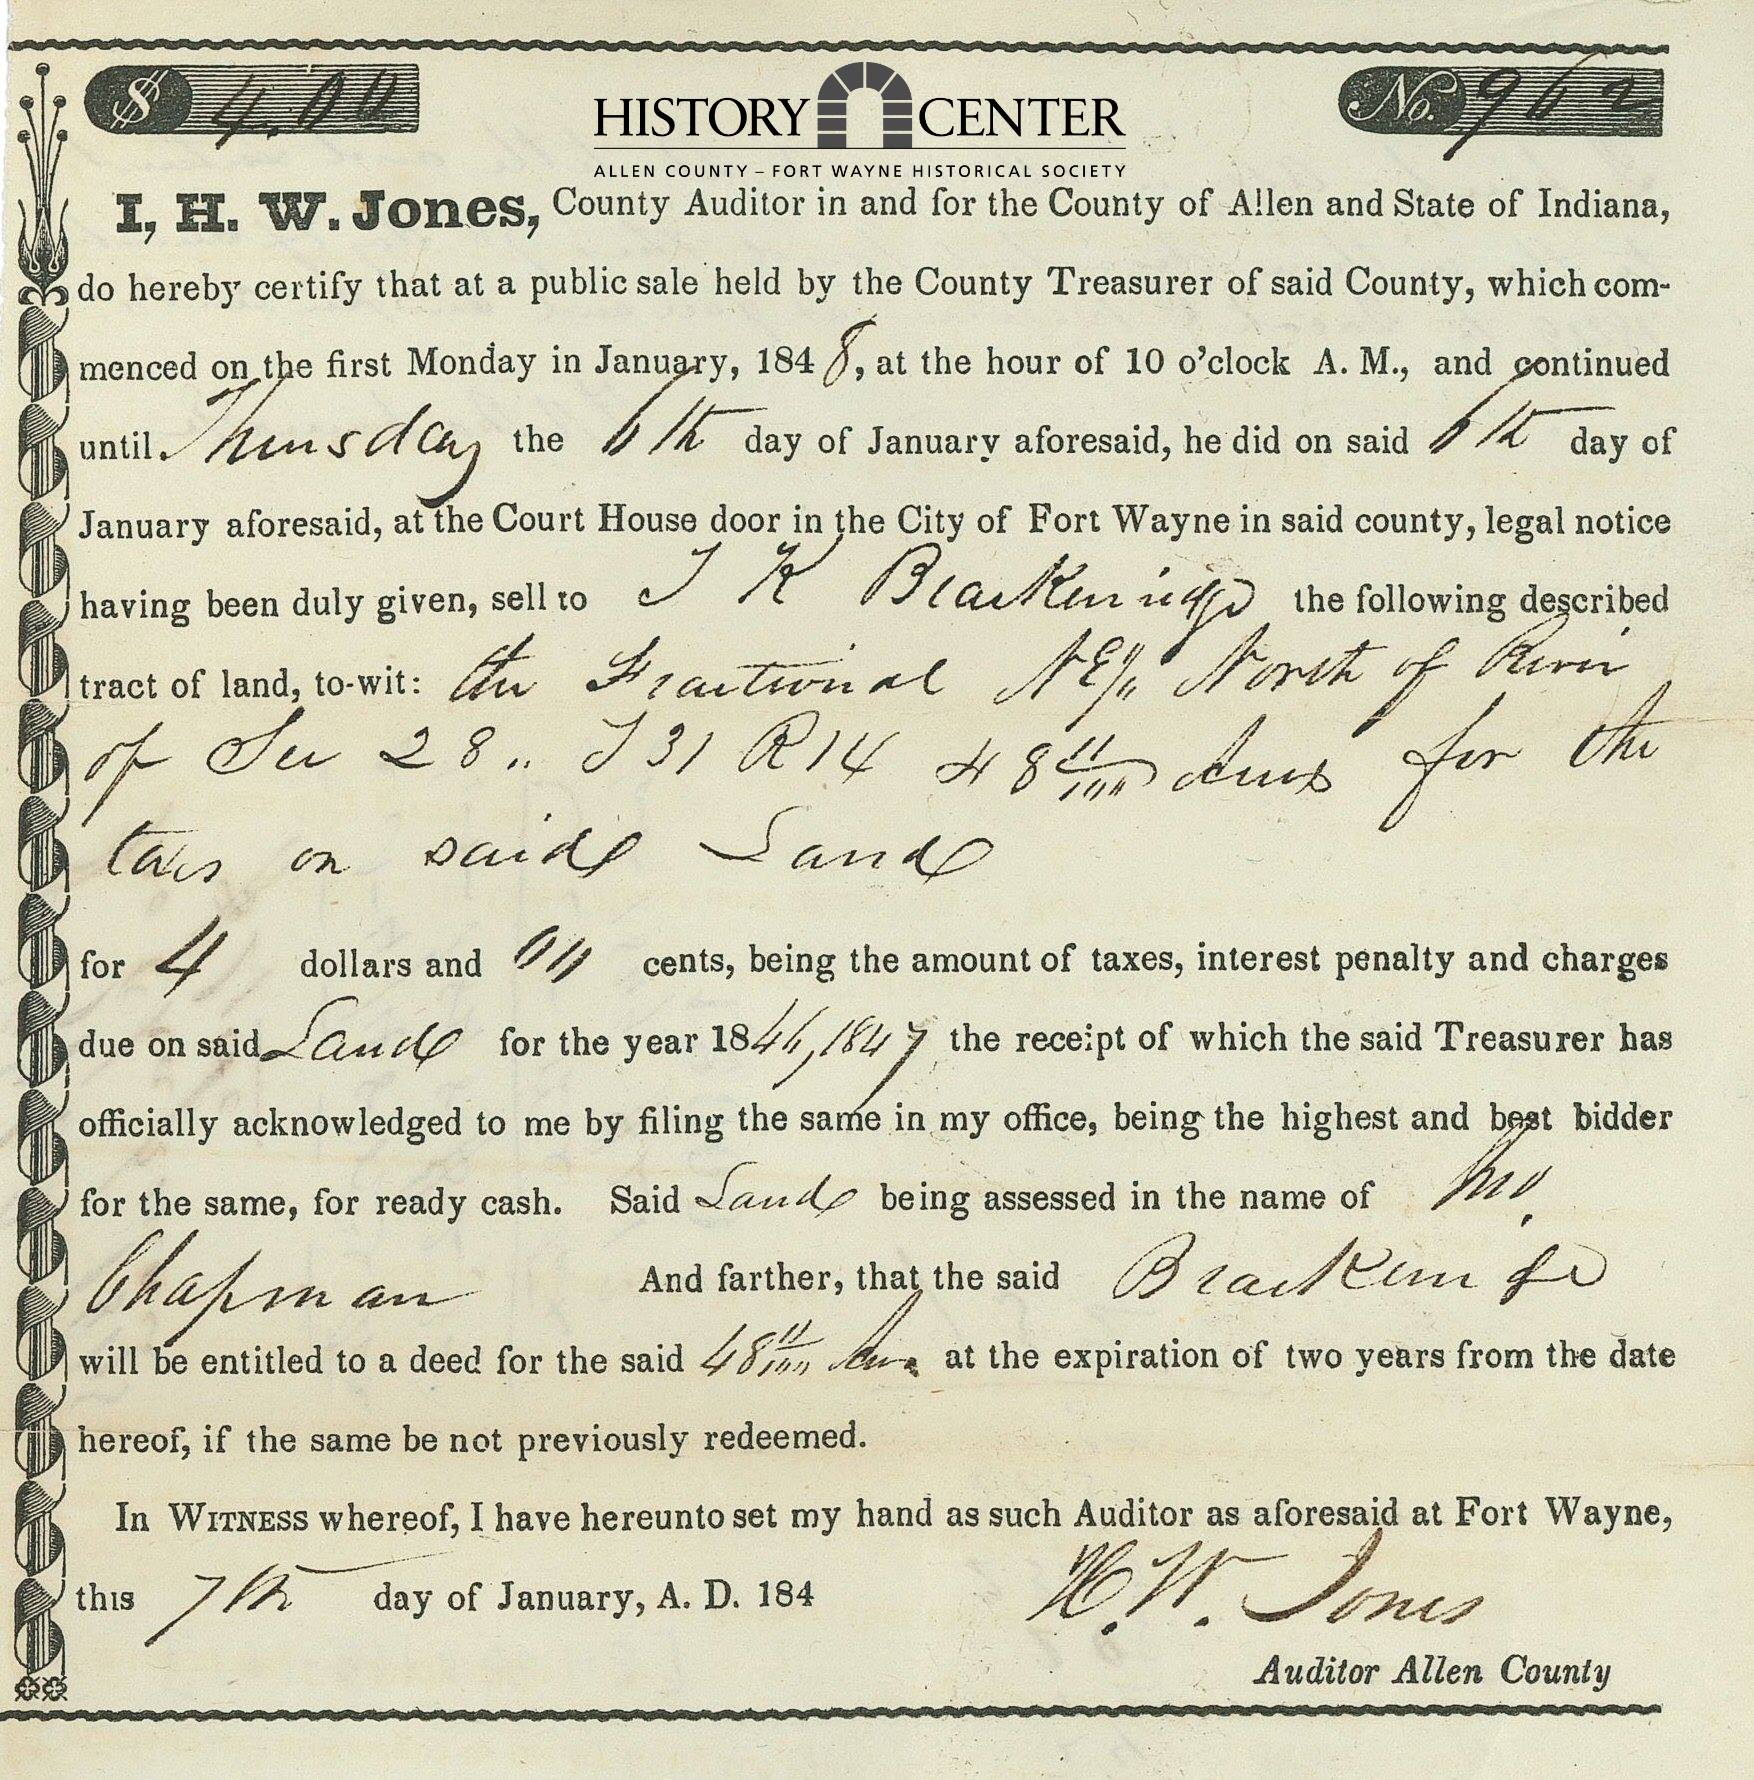 $ 4.00
HISTORY CENTER
No. 962
ALLEN COUNTY – FORT WAYNE HISTORICAL SOCIETY
I, H. W. Jones, County Auditor in and for the County of Allen and State of Indiana,
do hereby certify that at a public sale held by the County Treasurer of said County, which com-
menced on the first Monday in January, 1848, at the hour of 10 o'clock A. M., and continued
until Thursday the 6th day of January aforesaid, he did on said 6th day of
January aforesaid, at the Court House door in the City of Fort Wayne in said county, legal notice
having been duly given, sell to J K Brackenridge the following described
tract of land, to-wit: the Fractional NE/4 North of River
of Sec 28 .. T31 R14 48 11/100 Acres for the
taxes on said Land
for 4 dollars and 00 cents, being the amount of taxes, interest penalty and charges
due on said Land for the year 1846, 1847 the receipt of which the said Treasurer has
officially acknowledged to me by filing the same in my office, being the highest and best bidder
for the same, for ready cash. Said Land being assessed in the name of
Chapman And farther, that the said Brackenridge
will be entitled to a deed for the said 48 11/100 Acres at the expiration of two years from the date
hereof, if the same be not previously redeemed.
In WITNESS whereof, I have hereunto set my hand as such Auditor as aforesaid at Fort Wayne,
this 7th day of January, A. D. 184
H. W. Jones
Auditor Allen County